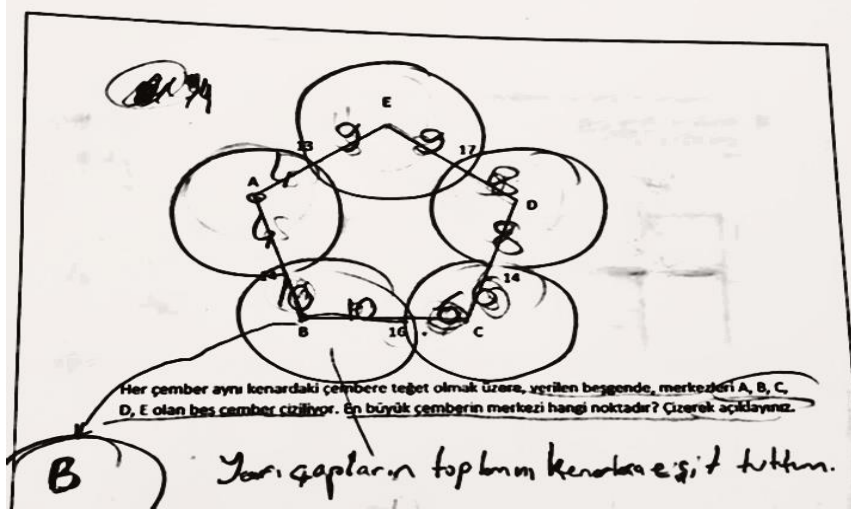 E
13
9
9
17
4
A
8
D
8
14
10
6
B
10
16
C
Her çember aynı kenardaki çembere teğet olmak üzere, verilen beşgende, merkezleri A, B, C,
D, E olan beş çember çiziliyor. En büyük çemberin merkezi hangi noktadır? Çizerek açıklayınız.
B
Yarı çapların toplamını kenarlara eşit tuttum.